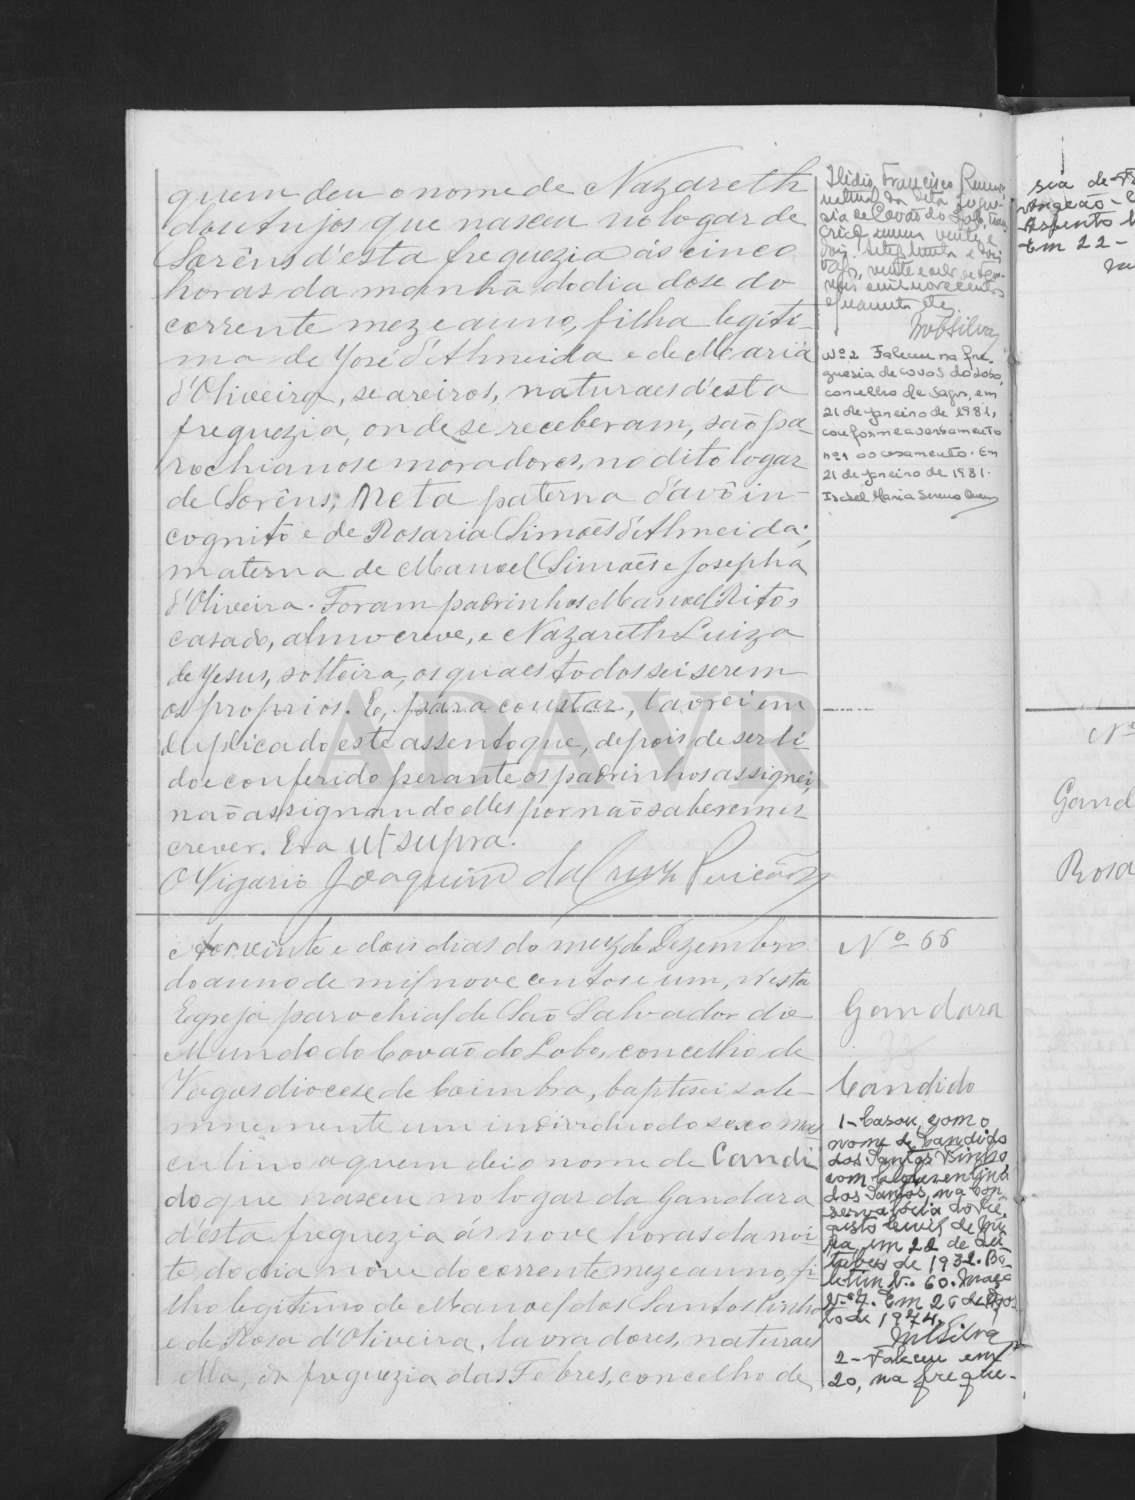 quem deu o nome de Nazareth
que nasceu no logar de
Sorêns d'esta freguezia ás cinco
horas da manhã do dia dose do
corrente mez e anno, filha legiti-
ma de José d'Almeida e de Maria
d'Oliveira, seareiros, naturaes d'esta
freguezia, onde se receberam, são pa-
rochianos e moradores, no dito logar
de Sorêns; Neta paterna d'avô in-
cognito e de Rosaria Simões d'Almeida;
materna de Manoel Simões e Josepha
d'Oliveira. Foram padrinhos Manoel Rito,
casado, almocreve, e Nazareth Luiza
de Jesus, solteira, os quaes todos sei serem
os proprios. E, para constar, lavrei em
duplicado este assento que, depois de ser li-
do e conferido perante os padrinhos assignei,
não assignando elles por não saberem es
crever. Era ut supra.
O Vigario Joaquim da Cruz
Aos vinte e dois dias do mez de Dezembro
do anno de mil nove centos e um, n'esta
Egreja parochial de São Salvador do
Mundo do Covão do Lobo, concelho de
Vagos diocese de Coimbra, baptisei sole-
mnemente um individuo do sexo mas
culino a quem dei o nome de Candi
do que nasceu no logar da Gandara
d'esta freguezia ás nove horas da noi-
te do dia nove do corrente mez e anno, fi
lho legitimo de Manoel dos Santos
e de Rosa d'Oliveira, lavradores, naturaes
elle, da freguezia das Febres, concelho de
Ilidio Francisco
natural da dita fregue-
sia de Covão do Lobo,
vinte e
dois
vinte e
mil novecentos
e quarenta
Silva
Nº 2 Faleceu na fre-
guesia de Covão do Lobo,
concelho de Vagos, em
21 de Janeiro de 1981,
conforme averbamento
nº 1 ao casamento. Em
21 de Janeiro de 1981.
Isabel Maria
Nº 66
Gandara
Candido
1 - Casou, com o
nome de Candido
dos Santos
com
dos Santos, na Con
servatória do Re-
gisto Civil de
em 22 de
de 1932. Bo-
letim Nº 60. Maço
Nº 7. Em 26 de Agos
to de 1974.
Silva
2 - Faleceu em
20, na fregue-
sia de
Assento
Em 22 -
Nº
Gand
Rosa
ADAVR